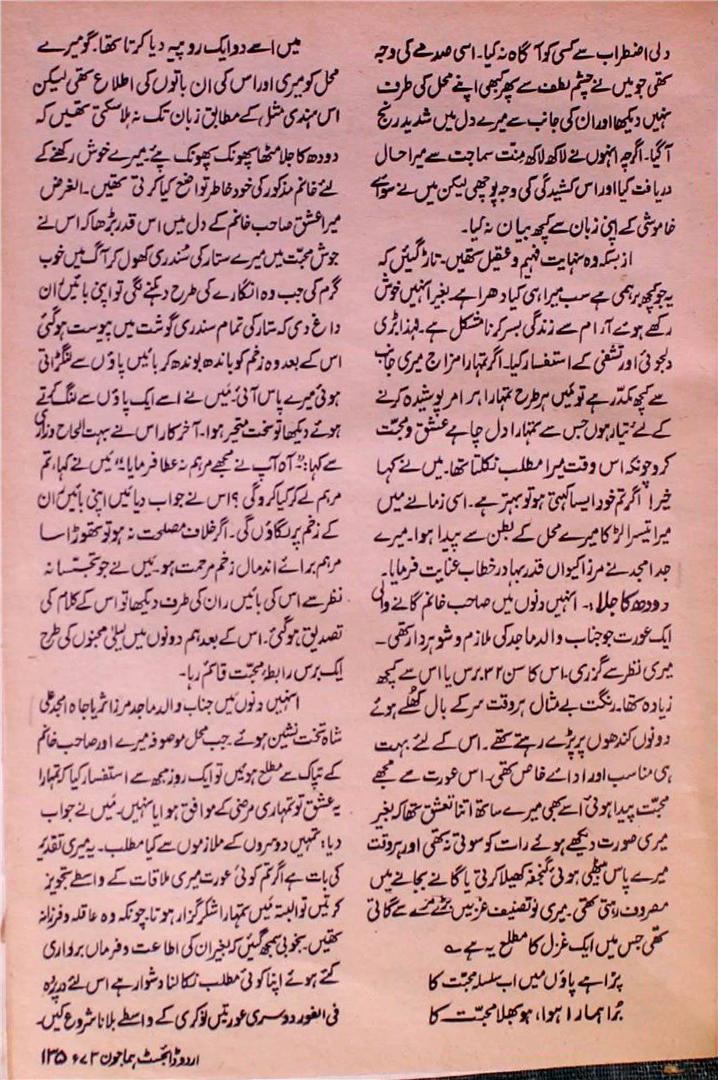 دلی اضطراب سے کسی کو آگاہ نہ کیا۔ اسی صدمے کی وجہ
تھی جو میں نے چشم لطف سے پھر کبھی اپنے محل کی طرف
نہیں دیکھا اور ان کی جانب سے میرے دل میں شدید رنج
آ گیا۔ اگرچہ انہوں نے لاکھ لاکھ منت سماجت سے میرا حال
دریافت کیا اور اس کشیدگی کی وجہ پوچھی لیکن میں نے سوائے
خاموشی کے اپنی زبان سے کچھ بیان نہ کیا۔
از بسکہ وہ نہایت فہیم و عقیل تھیں۔ تاڑ گئیں کہ
یہ جو کچھ برہمی ہے سب میرا ہی کیا دھرا ہے۔ بغیر انہیں خوش
رکھے ہوئے آرام سے زندگی بسر کرنا مشکل ہے۔ لہٰذا بڑی
دلجوئی اور تشفی کے استفسار کیا۔ اگر تمہارا مزاج میری جانب
سے کچھ مکدّر ہے تو میں ہر طرح تمہارا ہر امر پوشیدہ کرنے
کے لئے تیار ہوں جس سے تمہارا دل چاہے عشق و محبّت
کرو چونکہ اس وقت میرا مطلب نکلتا تھا۔ میں نے کہا
خیر! اگر تم خود ایسا کہتی ہو تو بہتر ہے۔ اسی زمانے میں
میرا تیسرا لڑکا میرے محل کے بطن سے پیدا ہوا۔ میرے
جد امجد نے مرزا کیواں قدر بہادر خطاب عنایت فرمایا۔
دودھ کا جلا :۔ انہیں دنوں میں صاحب خانم گانے والی
ایک عورت جو جناب والد ماجد کی ملازم و شوہر دار تھی۔
میری نظر سے گزری۔ اس کا سن ۳۲ برس یا اس سے کچھ
زیادہ تھا۔ رنگت بے مثال ہر وقت سر کے بال کھلے ہوئے
دونوں کندھوں پر پڑے رہتے تھے۔ اس کے لئے بہت
ہی مناسب اور ادائے خاص تھی۔ اس عورت سے مجھے
محبّت پیدا ہوئی اسے بھی میرے ساتھ اتنا تعشق تھا کہ بغیر
میری صورت دیکھے ہوئے رات کو سوتی نہ تھی اور ہر وقت
میرے پاس بیٹھی ہوئی گنجفہ کھیلا کرتی یا گانے بجانے میں
مصروف رہتی تھی۔ میری نو تصنیف غزلیں بڑے مزے سے گاتی
تھی جس میں ایک غزل کا مطلع یہ ہے ؎
پڑا ہے پاؤں میں اب سلسلہ محبّت کا
بُرا ہمارا ہوا، ہو بھلا محبّت کا
میں اسے دو ایک روپیہ دیا کرتا تھا۔ گو میرے
محل کو میری اور اس کی ان باتوں کی اطلاع تھی لیکن
اس ہندی مثل کے مطابق زبان تک نہ ہلا سکتی تھیں کہ
دودھ کا جلا مٹھا پھونک پھونک پئے۔ میرے خوش رکھنے کے
لئے خانم مذکور کی خود خاطر تواضع کیا کرتی تھیں۔ الغرض
میرا عشق صاحب خانم کے دل میں اس قدر بڑھا کہ اس نے
جوش محبّت میں میرے ستار کی سُندری کھول کر آگ میں خوب
گرم کی جب وہ انگارے کی طرح دہکنے لگی تو اپنی بائیں ران
داغ دی کہ ستار کی تمام سندری گوشت میں پیوست ہو گئی
اس کے بعد وہ زخم کو باندھ بوندھ کر بائیں پاؤں سے لنگڑاتی
ہوئی میرے پاس آئی۔ میں نے اسے ایک پاؤں سے لنگ کرتے
ہوئے دیکھا تو سخت متحیر ہوا۔ آخر کار اس نے بہت الحاح و زاری
سے کہا: "آہ آپ نے مجھے مرہم نہ عطا فرمایا" میں نے کہا، تم
مرہم لے کر کیا کرو گی؟ اس نے جواب دیا میں اپنی بائیں ران
کے زخم پر لگاؤں گی۔ اگر خلاف مصلحت نہ ہو تو تھوڑا سا
مرہم برائے اندمال زخم مرحمت ہو۔ میں نے جو تجسّسانہ
نظر سے اس کی بائیں ران کی طرف دیکھا تو اس کے کلام کی
تصدیق ہو گئی۔ اس کے بعد ہم دونوں میں لیلیٰ مجنوں کی طرح
ایک برس رابطۂ محبّت قائم رہا۔
انہیں دنوں میں جناب والد ماجد مرزا ثریا جاہ امجد علی
شاہ تخت نشین ہوئے۔ جب محل موصوفہ میرے اور صاحب خانم
کے تپاک سے مطلع ہوئیں تو ایک روز مجھ سے استفسار کیا کہ تمہارا
یہ عشق تو تمہاری مرضی کے موافق ہوا یا نہیں۔ میں نے جواب
دیا: تمہیں دوسروں کے ملازموں سے کیا مطلب۔ یہ میری تقدیر
کی بات ہے اگر تم کوئی عورت میری ملاقات کے واسطے تجویز
کرتیں تو البتہ میں تمہارا شکر گزار ہوتا۔ چونکہ وہ عاقلہ و فرزانہ
تھیں۔ بخوبی سمجھ گئیں کہ بغیر ان کی اطاعت و فرماں برداری
کئے ہوئے اپنا کوئی مطلب نکالنا دشوار ہے اس لئے در پردہ
فی الفور دوسری عورتیں نوکری کے واسطے بلانا شروع کیں۔
اردو ڈائجسٹ ہما جون ۷۳ء ۱۳۵